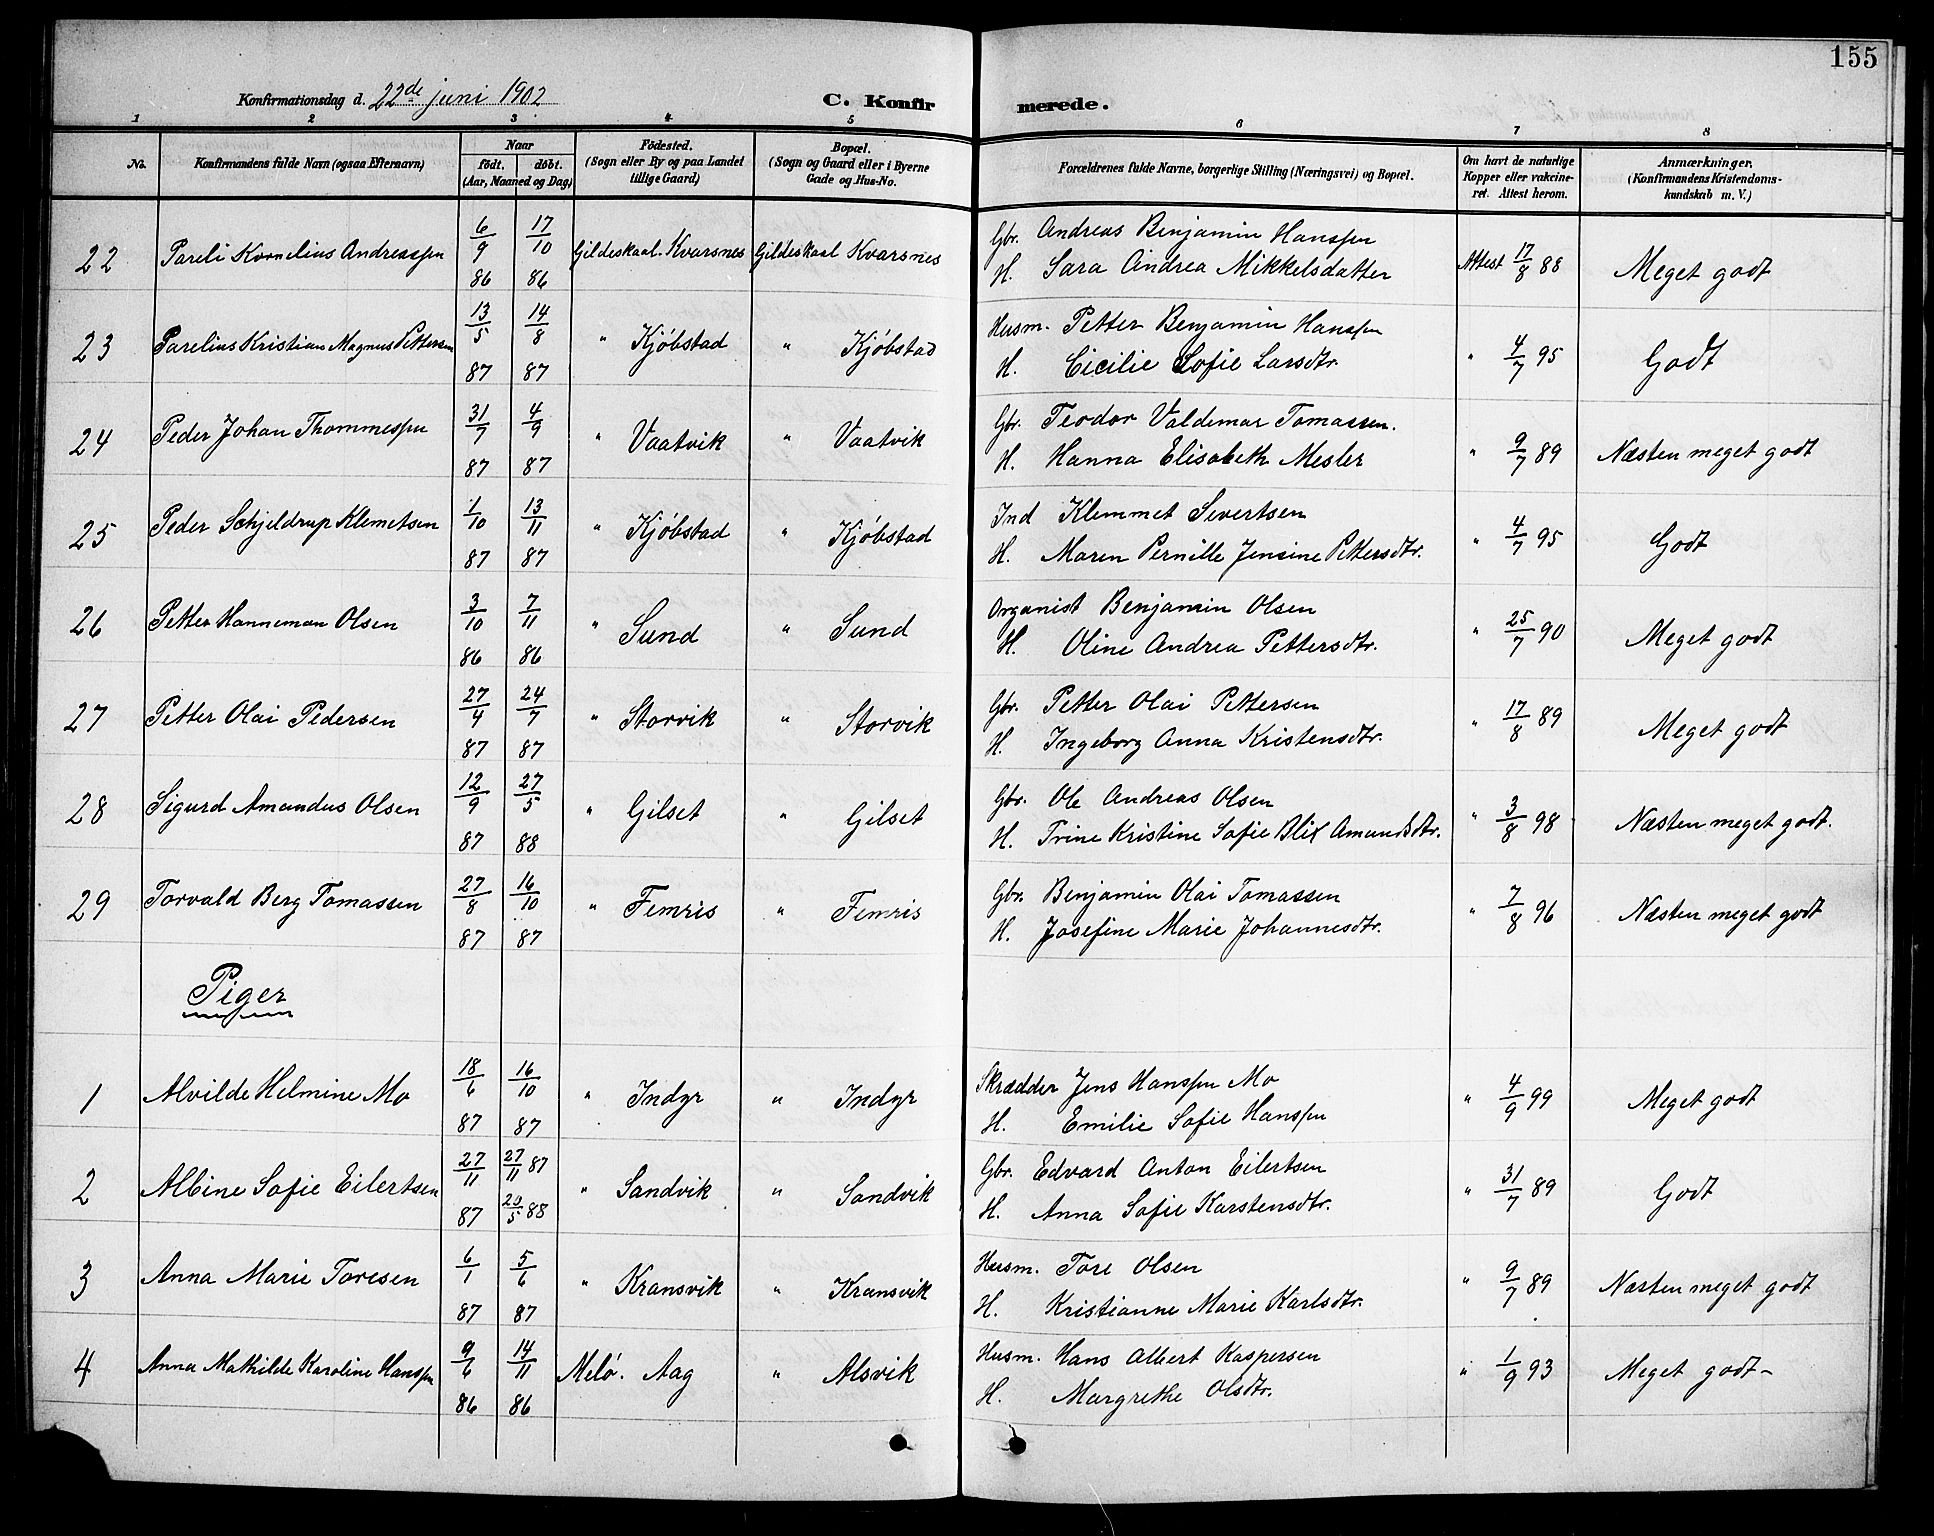 155
Konfirmationsdag d. 22de juni 1902 C. Konfirmerede.
1 2 3 4 5 6 7 8
No.
Konfirmandens fulde Navn (ogsaa Efternavn)
Naar
födt. döbt.
(Aar, Maaned og Dag)
Födested.
(Sogn eller By og paa Landet
tillige Gaard)
Bopæl.
(Sogn og Gaard eller i Byerne
Gade og Hus-No.
Forældrenes fulde Navne, borgerlige Stilling (Næringsvei) og Bopæl.
Om havt de naturlige
Kopper eller vakcine-
ret. Attest herom.
Anmærkninger.
(Konfirmandens Kristendoms-
kundskab m. V.)
22 Pareli Kornelius Andreassen 6/9 86 17/10 86 Gildeskaal Kvarsnes Gildeskaal Kvarsnes
Gbr. Andreas Benjamin Hanssen
H. Sara Andrea Mikkelsdatter
Attest 17/8 88 Meget godt
23 Parelius Kristian Magnus Pettersen 13/5 87 14/8 87 " Kjöbstad " Kjöbstad
Husm. Petter Benjamin Hanssen
H. Cicilie Sofie Larsdtr.
" 4/7 95 Godt
24 Peder Johan Thommessen 31/7 87 4/9 87 " Vaatvik " Vaatvik
Gbr. Teodor Valdemar Tomassen.
H. Hanna Elisabeth Mesler
" 9/7 89 Næsten meget godt
25 Peder Schjeldrup Klemetsen 1/10 87 13/11 87 " Kjöbstad " Kjöbstad
Ind Klemmet Sivertsen
H. Maren Pernille Jensine Pettersdtr.
" 4/7 95 Godt
26 Petter Hanneman Olsen 3/10 86 7/11 86 " Sund " Sund
Organist Benjamin Olsen
H. Oline Andrea Pettersdtr.
" 25/7 90 Meget godt
27 Petter Olai Pedersen 27/4 87 24/7 87 " Storvik " Storvik
Gbr. Petter Olai Pettersen
H. Ingeborg Anna Kristensdtr.
" 17/8 89 Meget godt
28 Sigurd Amandus Olsen 12/9 87 27/5 88 " Gilset " Gilset
Gbr. Ole Andreas Olsen
H. Trine Kristine Sofie Blix Amundsdtr.
" 3/8 98 Næsten meget godt.
29 Torvald Berg Tomassen 27/8 87 16/10 87 " Femris " Femris
Gbr. Benjamin Olai Tomassen
H. Josefine Marie Johannesdtr.
" 7/8 96 Næsten meget godt
Piger
1 Alvilde Helmine Mo 18/6 87 16/10 87 " Indyr " Indyr
Skrædder Jens Hanssen Mo
H. Emilie Sofie Hanssen
" 4/9 99 Meget godt
2 Albine Sofie Eilertsen 27/11 87 27/11 87 20/5 88 " Sandvik " Sandvik
Gbr. Edvard Anton Eilertsen
H. Anna Sofie Karstensdtr.
" 31/7 89 Godt
3 Anna Marie Toresen 6/1 87 5/6 87 " Kransvik " Kransvik
Husm. Tore Olsen
H. Kristianne Marie Karlsdtr.
" 9/7 89 Næsten meget godt
4 Anna Mathilde Karoline Hanssen 9/6 86 14/11 86 Melö. Aag " Alsvik
Husm. Hans Albert Kaspersen
H. Margrethe Olsdtr.
" 1/9 93 Meget godt-